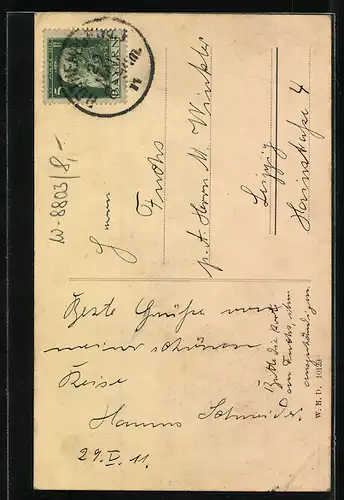 5
BAYERN
W-8803/8,-
Herrn
Fuchs
p. A. Herrn M. Winkler
Leipzig
Hainstraße 4
Beste Grüße von
meiner schönen
Reise
Hanns Schneider.
29. V. 11.
Bitte die Karte
an Fuchs
auszuhändigen
W. H. D. 10123